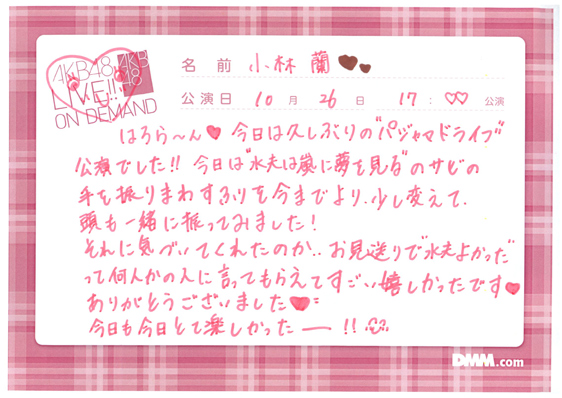 AKB48
AKB48
LIVE!!
ON DEMAND
名前 小林 蘭
公演日 10月26日 17:♡♡公演
はろら〜ん♥今日は久しぶりの"パジャマドライブ"
公演でした!!今日は"水夫は嵐に夢を見る"のサビの
手を振りまわすふりを今までより、少し変えて、
頭も一緒に振ってみました!
それに気づいてくれたのか..お見送りで"水夫よかった"
って何人かの人に言ってもらえてすごい嬉しかったです♥
ありがとうございました♥
今日も今日とて楽しかったー!!
DMM.com